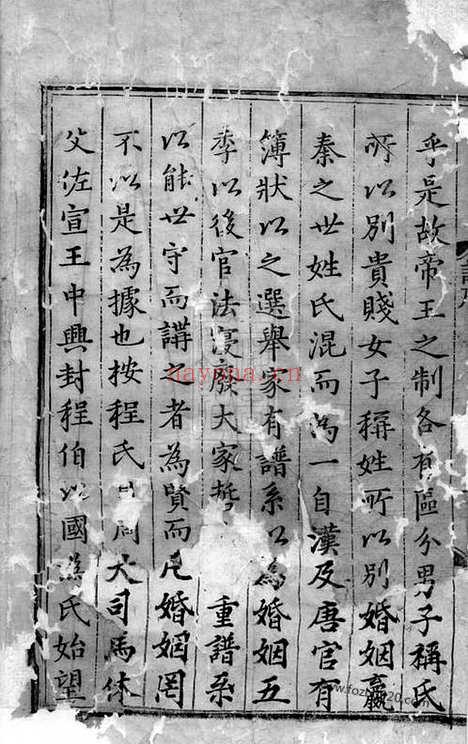 乎是故帝王之制各有區分男子稱氏
所以別貴賤女子稱姓所以別婚姻嬴
秦之世姓氏混而為一自漢及唐官有
簿狀以之選舉家有譜系以為婚姻五
季以後官法寖廢大家 重譜系
以能世守而講之者為賢而凡婚姻罔
不以是為據也按程氏 周大司馬休
父佐宣王中興封程伯以國為氏始望
nayona.cn
www.fozhu920.com